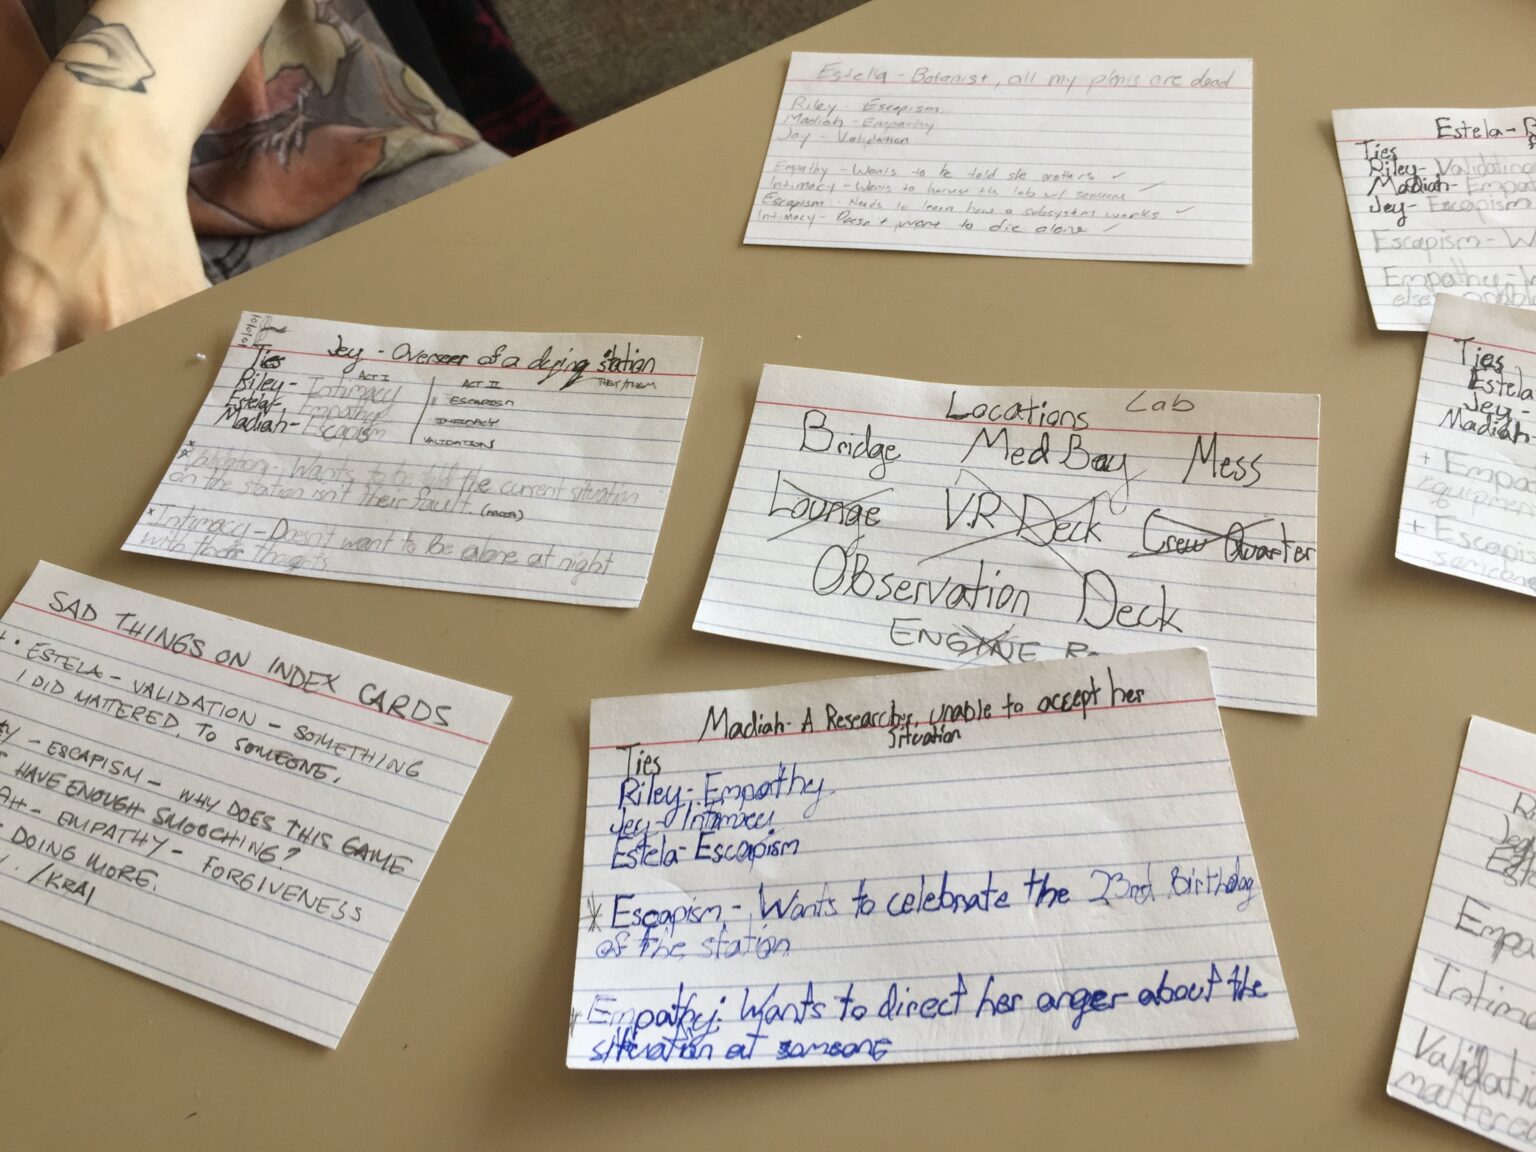 Estella - Botanist, all my plants are dead
Riley - Escapism
Madiah - Empathy
Jey - Validation
Empathy - Wants to be told she matters ✓
Intimacy - Wants to harvest the lab w/ someone ✓
Escapism - Needs to learn how a subsystem works ✓
Intimacy - Doesn't want to die alone ✓
Estela -
Ties
Riley - Validating
Madiah - Empa
Jey - Escapism
Escapism - W
Empathy -
else
Jey - Overseer of a dying station
THEY/THEM
Ties
ACT I
ACT II
Riley - Intimacy
ESCAPISM
Estela - Empathy
INTIMACY
Madiah - Escapism
VALIDATION
* Validation - Wants to be told the current situation
on the station isn't their fault.
* Intimacy - Doesn't want to be alone at night
with their thoughts
Locations Lab
Bridge Med Bay Mess
Lounge V.R Deck Crew Quarter
Observation Deck
ENGINE R
Ties
Estela
Jey -
Madiah -
+ Empa
equipmen
+ Escapi
someone
SAD THINGS ON INDEX CARDS
ESTELA - VALIDATION - SOMETHING
I DID MATTERED, TO SOMEONE.
- ESCAPISM - WHY DOES THIS GAME
HAVE ENOUGH SMOOCHING?
AH - EMPATHY - FORGIVENESS
DOING MORE.
/KRAI
Madiah - A Researcher, unable to accept her
situation
Ties
Riley - Empathy
Jey - Intimacy
Estela - Escapism
* Escapism - Wants to celebrate the 23rd Birthday
of the station
* Empathy: Wants to direct her anger about the
situation at someone
Empa
Intima
Validatio
mattered